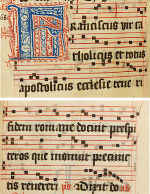 Franciscus vir ca
tholicus et totus
apostolicus ecclesie tene ri
fidem romane docuit presbi
teros que monuit pre cunc
tis revereri